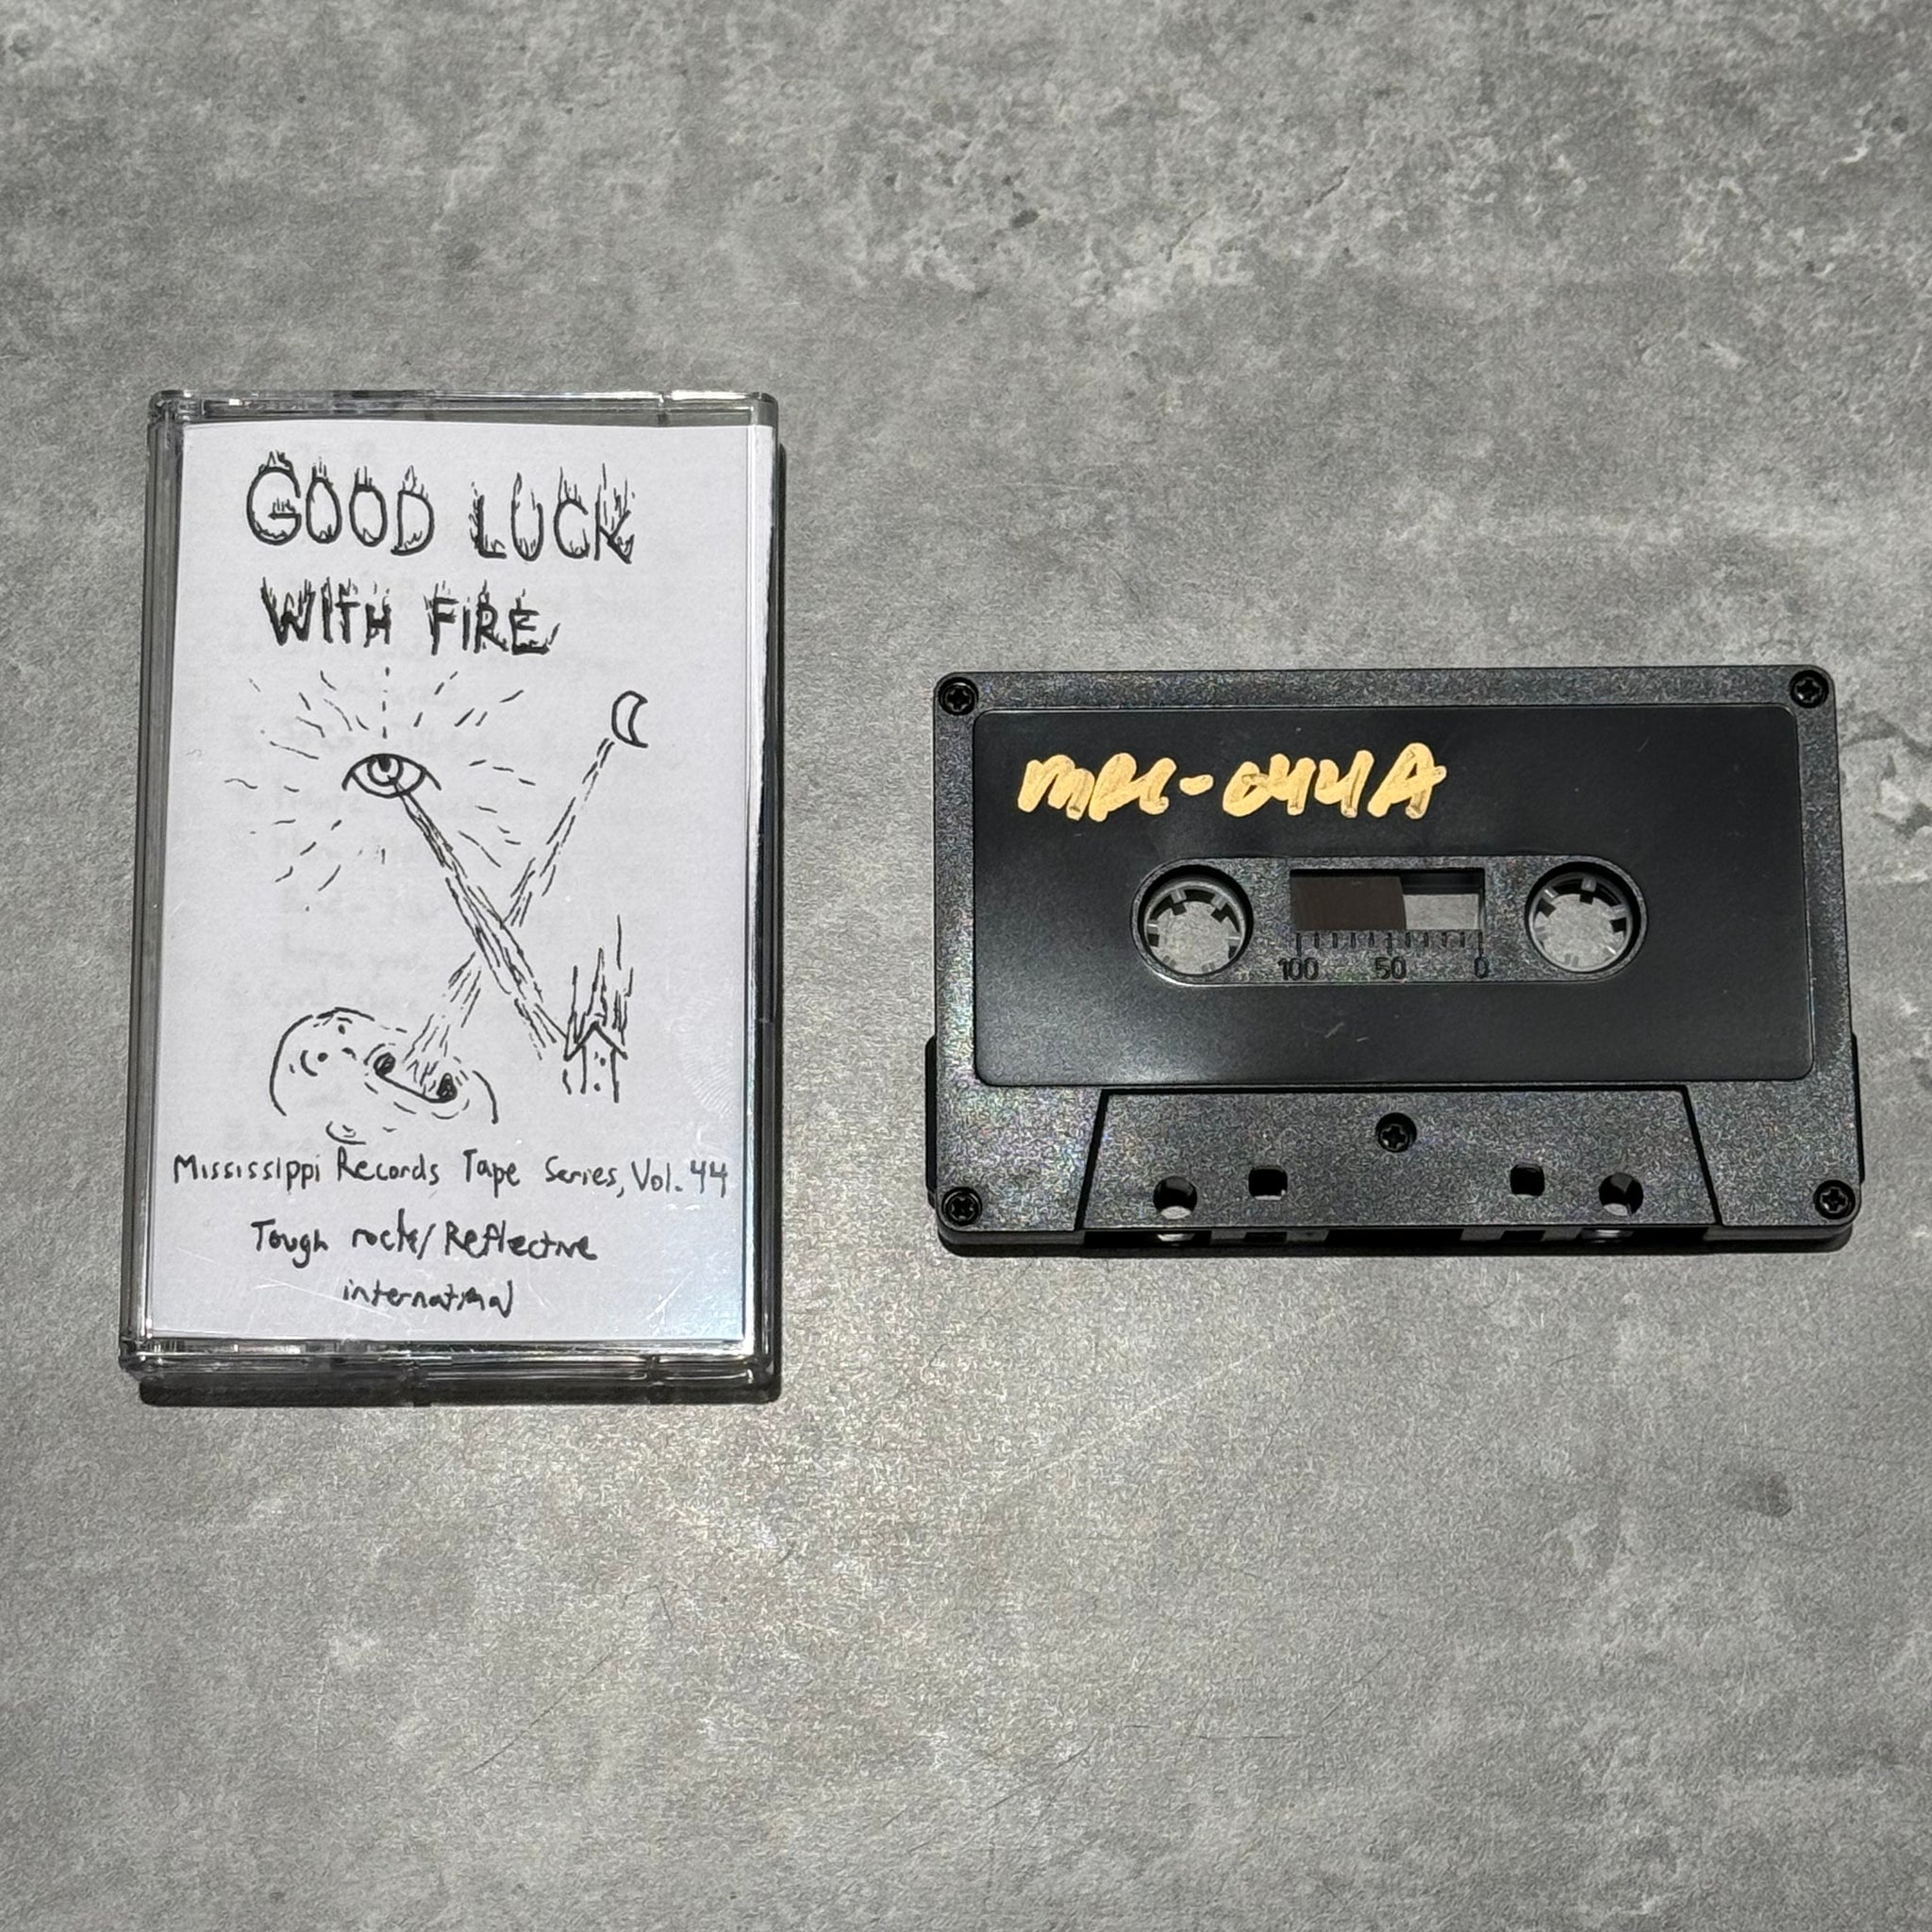 GOOD LUCK
WITH FIRE
Mississippi Records Tape Series, Vol. 44
Tough rock/Reflective
international
MRC-044A
100 50 0